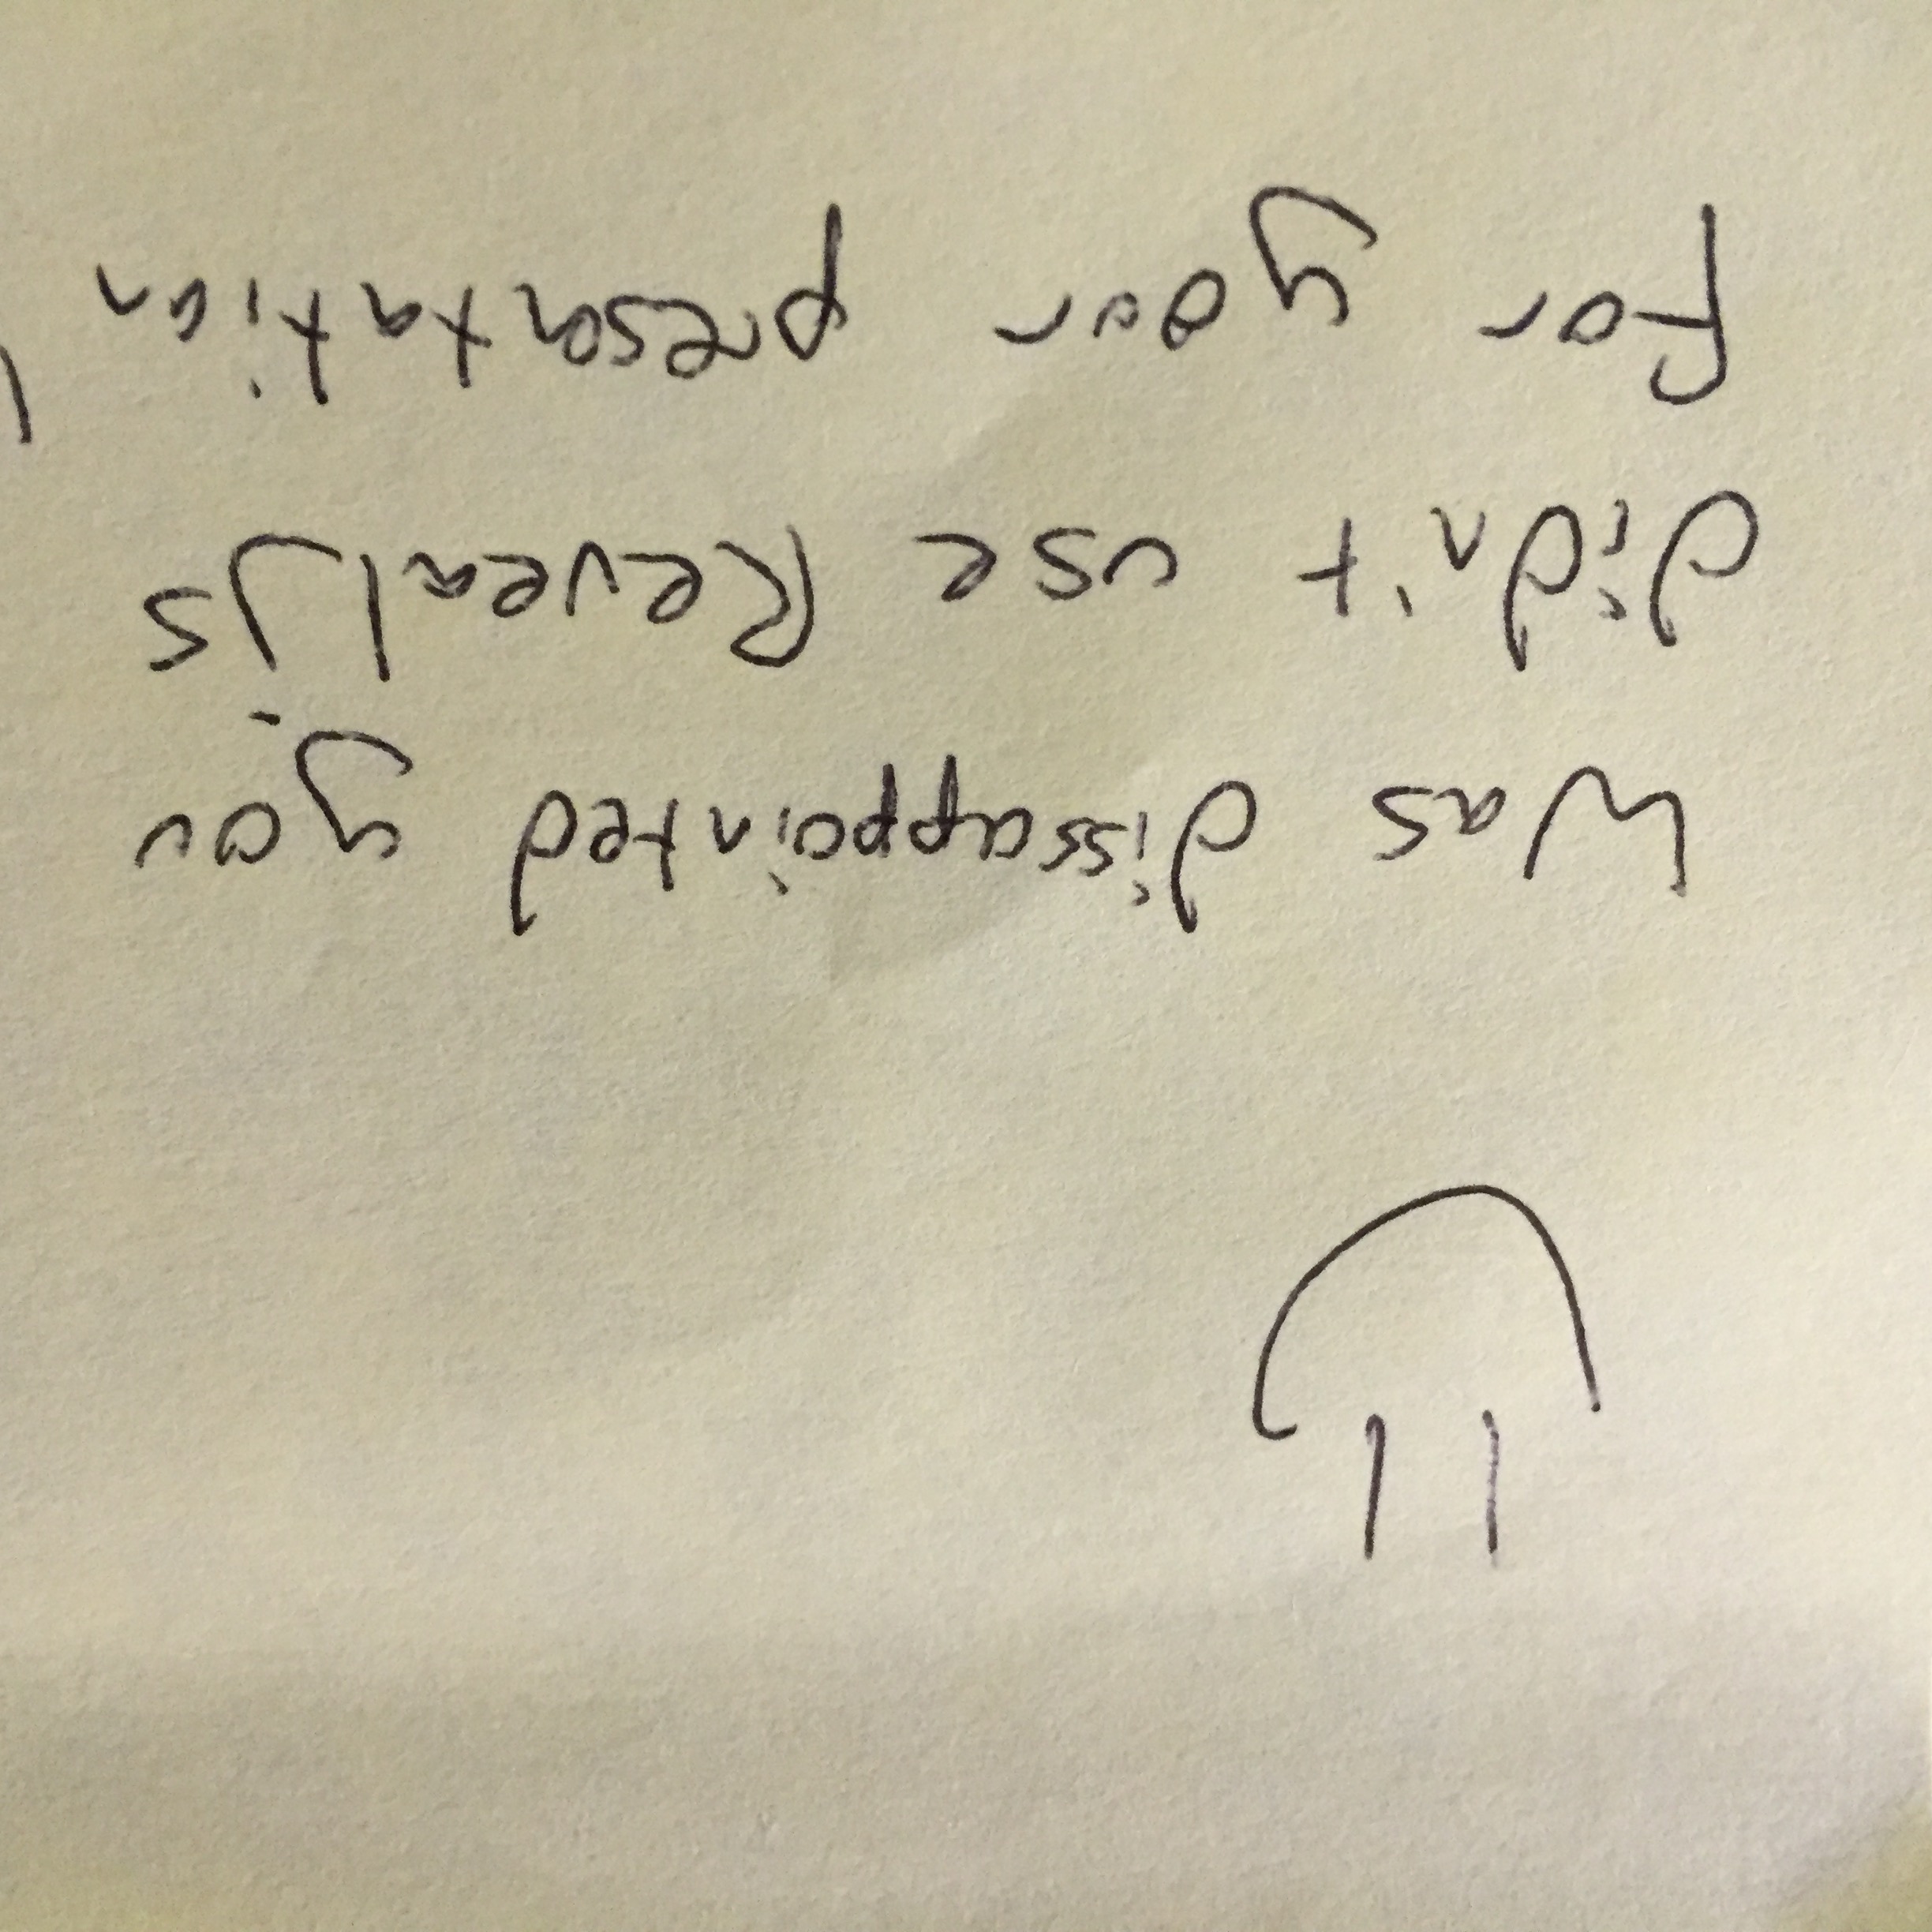 Was dissappointed you
didn't use Revealjs
for your presentation